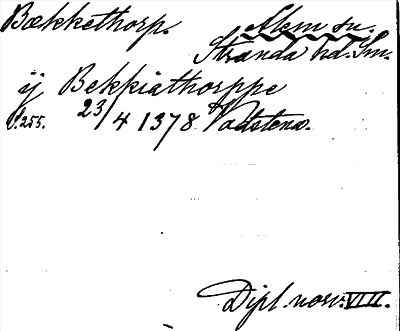 Bækkethorp. Ålem sn.
Stranda hd. Sm.
ij Bekkiathorppe
S. 255. 23/4 1378 Vadstena.
Dipl. norv. VIII.